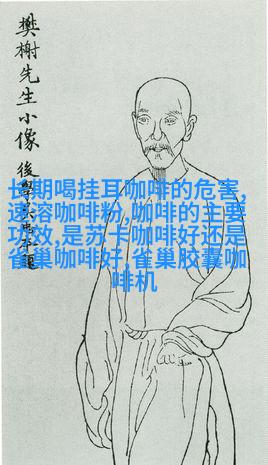 樊榭先生小像
後學
长期喝挂耳咖啡的危害,
速溶咖啡粉,咖啡的主要
功效,是苏卡咖啡好还是
雀巢咖啡好,雀巢胶囊咖
啡机